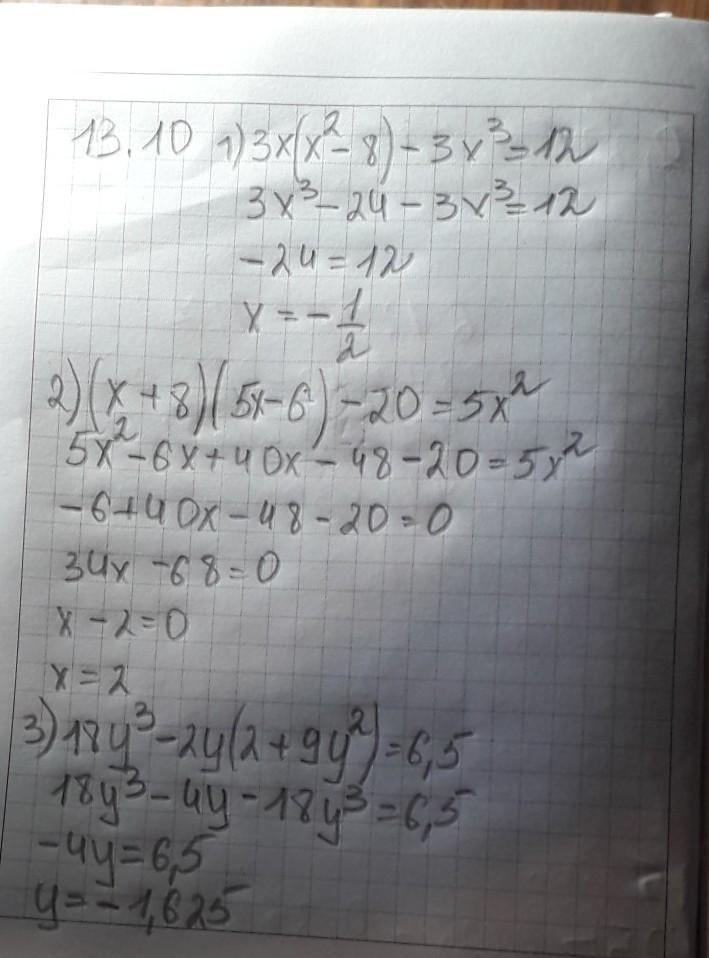 13.10 1) 3x(x² - 8) - 3x³ = 12
3x³ - 24 - 3x³ = 12
-24 = 12
x = -1/2
2) (x + 8)(5x - 6) - 20 = 5x²
5x² - 6x + 40x - 48 - 20 = 5x²
-6 + 40x - 48 - 20 = 0
34x - 68 = 0
x - 2 = 0
x = 2
3) 18y³ - 2y(2 + 9y²) = 6,5
18y³ - 4y - 18y³ = 6,5
-4y = 6,5
y = -1,625